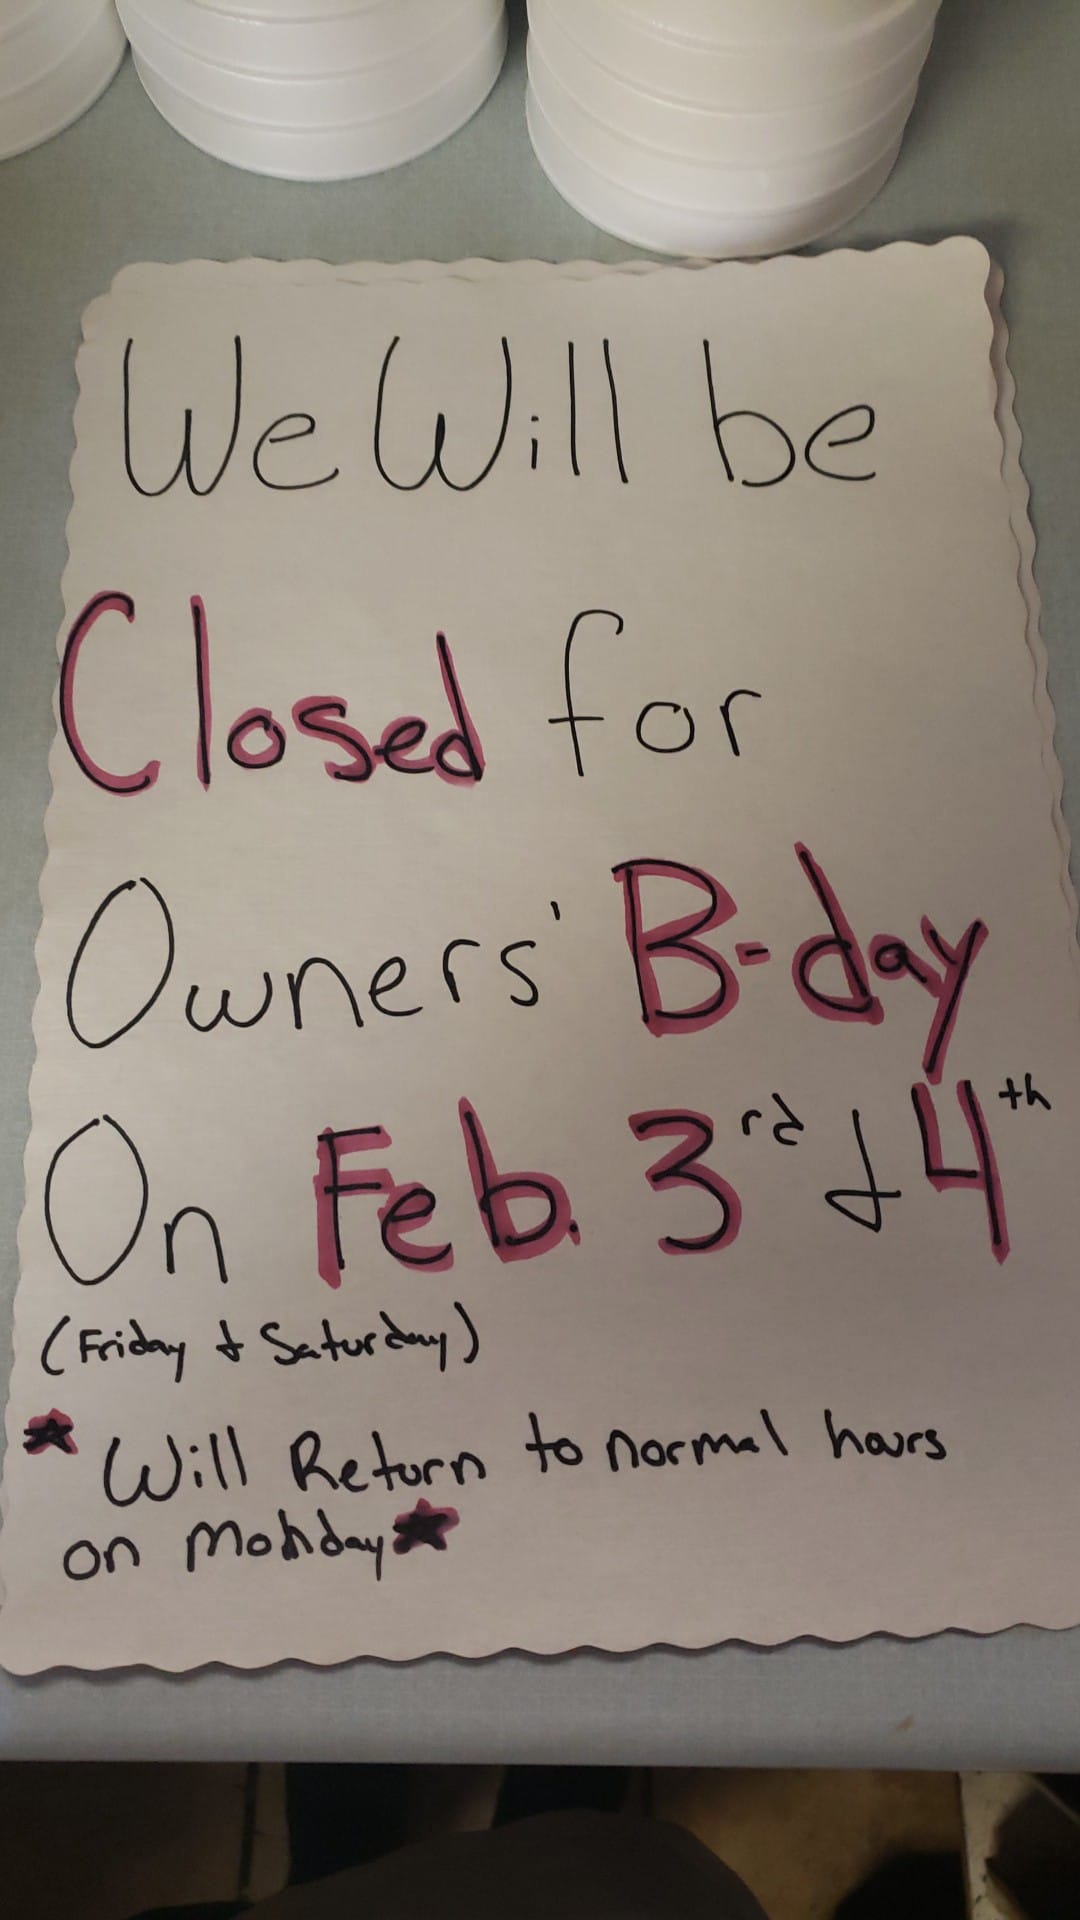 We Will be
Closed for
Owners' B-day
On Feb. 3rd & 4th
(Friday & Saturday)
★ Will Return to normal hours
on Monday ★